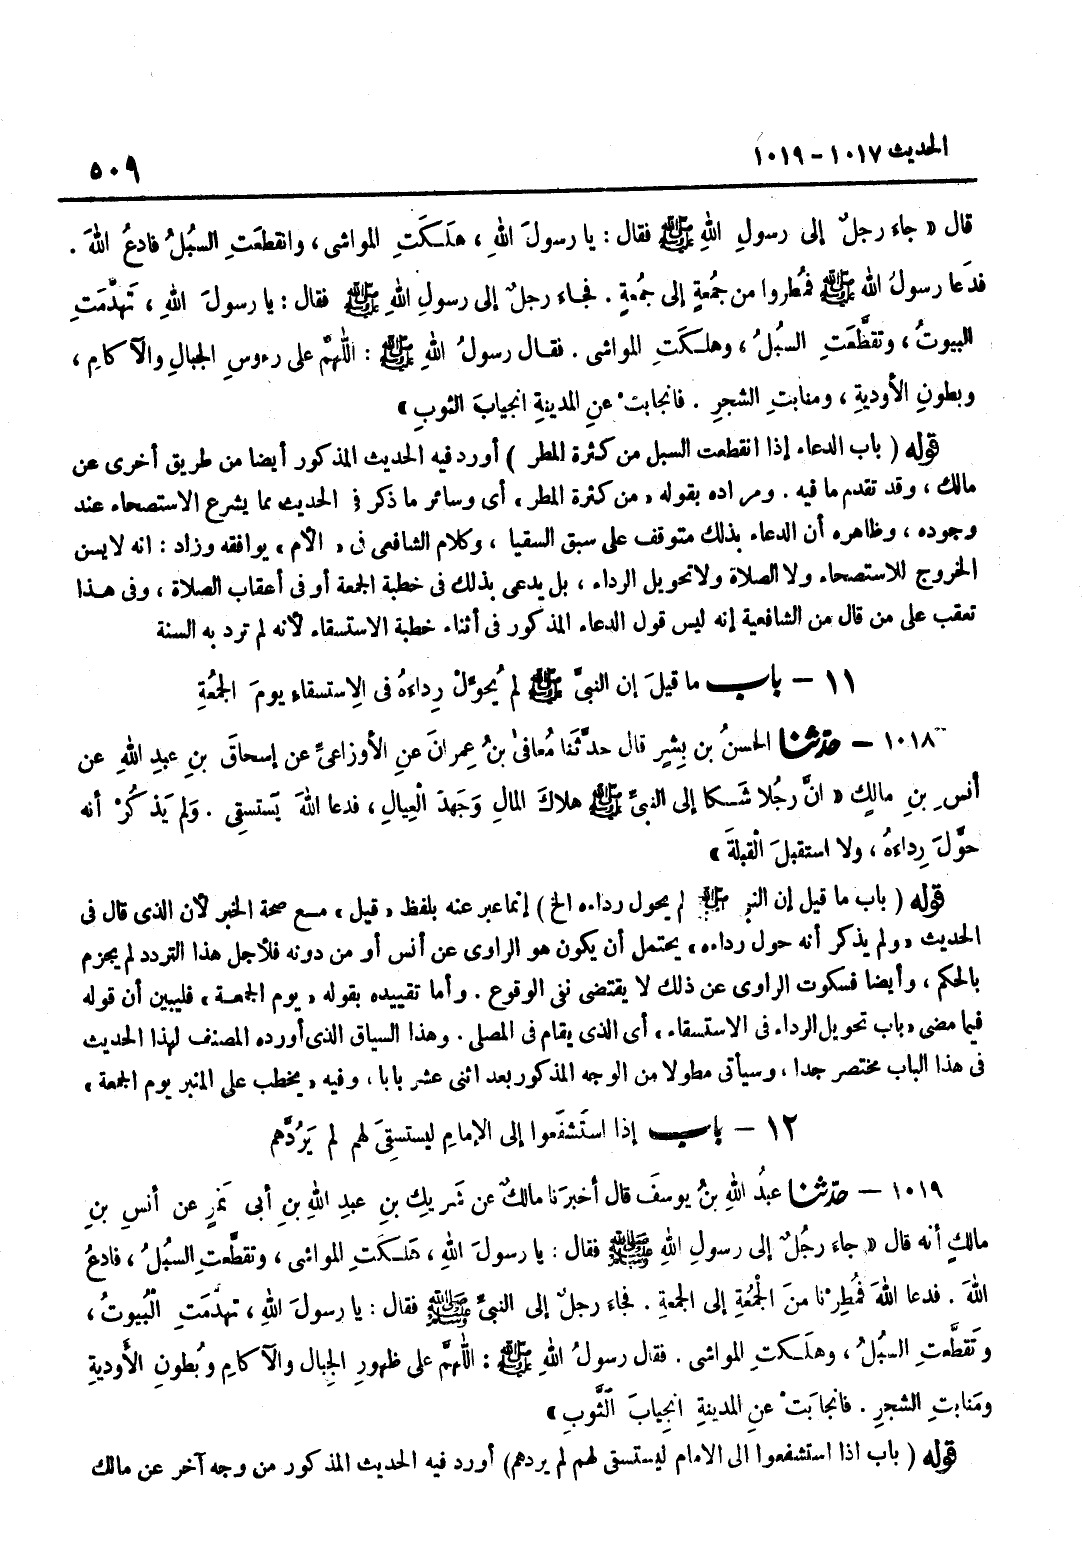 الحديث ١٠١٧ - ١٠١٩
٥٠٩
قال « جاء رجلٌ إلى رسولِ اللهِ ﷺ فقال : يا رسولَ اللهِ ، هلَكَتِ المواشى ، وانقطعَتِ السبُلُ فادعُ اللهَ .
فدَعا رسولُ الله ﷺ فمُطروا من جمُعةٍ إلى جمُعةٍ . فجاء رجلٌ إلى رسولِ اللهِ ﷺ فقال : يا رسولَ اللهِ ، تَهدَّمَتِ
البيوتُ ، وتقطَّعَتِ السبُلُ ، وهلكَتِ المواشى . فقال رسولُ اللهِ ﷺ : اللّٰهمَّ على رءوسِ الجبالِ والآكامِ ،
وبطونِ الأوديةِ ، ومنابتِ الشجرِ . فانجابتْ عنِ المدينةِ انجيابَ الثوبِ »
قوله ( باب الدعاء إذا انقطعت السبل من كثرة المطر ) أورد فيه الحديث المذكور أيضا من طريق أخرى عن
مالك ، وقد تقدم ما فيه . ومراده بقوله « من كثرة المطر » أى وسائر ما ذكر فى الحديث مما يشرع الاستصحاء عند
وجوده ، وظاهره أن الدعاء بذلك متوقف على سبق السقيا ، وكلام الشافعى فى « الأم » يوافقه وزاد : انه لا يسن
الخروج للاستصحاء ولا الصلاة ولا تحويل الرداء ، بل يدعى بذلك فى خطبة الجمعة أو فى أعقاب الصلاة ، وفى هذا
تعقب على من قال من الشافعية إنه ليس قول الدعاء المذكور فى أثناء خطبة الاستسقاء لأنه لم ترد به السنة
١١ - باب ما قيلَ إن النبىَّ ﷺ لم يُحوِّلْ رِداءهُ فى الِاستسقاءِ يومَ الجمُعةِ
١٠١٨ - حدّثنا الحسنُ بن بِشرٍ قال حدَّثَنا مُعافىٰ بنُ عِمرانَ عنِ الأوزاعىِّ عن إسحاقَ بنِ عبدِ اللهِ عن
أنسِ بنِ مالكٍ « انَّ رجُلا شَكا إلى النبىِّ ﷺ هلاكَ المالِ وَجَهدَ الْعِيالِ ، فدعا اللهَ يَستسقِى . وَلم يَذكُرْ أنه
حوَّلَ رِداءهُ ، ولا استقبلَ القبلةَ »
قوله ( باب ما قيل إن النبى ﷺ لم يحول رداءه الخ ) إنما عبر عنه بلفظ « قيل » مع صحة الخبر لأن الذى قال فى
الحديث « ولم يذكر أنه حول رداءه » يحتمل أن يكون هو الراوى عن أنس أو من دونه فلأجل هذا التردد لم يجزم
بالحكم ، وأيضا فسكوت الراوى عن ذلك لا يقتضى نفى الوقوع . وأما تقييده بقوله « يوم الجمعة » فليبين أن قوله
فيما مضى « باب تحويل الرداء فى الاستسقاء » أى الذى يقام فى المصلى . وهذا السياق الذى أورده المصنف لهذا الحديث
فى هذا الباب مختصر جدا ، وسيأتى مطولا من الوجه المذكور بعد اثنى عشر بابا ، وفيه « يخطب على المنبر يوم الجمعة »
١٢ - باب إذا استَشفَعوا إلى الإمامِ ليستسقِىَ لهم لم يَرُدَّهم
١٠١٩ - حدّثنا عبدُ اللهِ بنُ يوسفَ قال أخبرَنا مالكٌ عن شَريكِ بنِ عبدِ اللهِ بنِ أبى نَمرٍ عن أنسِ بنِ
مالكٍ أنه قال « جاء رجُلٌ إلى رسولِ اللهِ ﷺ فقال : يا رسولَ اللهِ ، هَلكَتِ المواشى ، وتقطَّعتِ السبُلُ ، فادعُ
اللهَ . فدعا اللهَ فمُطِرْنا منَ الْجمُعةِ إلى الجمعةِ . فجاءَ رجلٌ إلى النبىِّ ﷺ فقال : يا رسولَ اللهِ ، تهدَّمَتِ الْبيوتُ ،
وتَقطَّعتِ السبُلُ ، وهلَكتِ المواشى . فقال رسولُ اللهِ ﷺ : اللّٰهمَّ على ظهورِ الجِبال والآكامِ وبُطونِ الأوديةِ
ومَنابتِ الشجرِ . فانجابَتْ عنِ المدينةِ انجيابَ الثَّوبِ »
قوله ( باب اذا استشفعوا الى الامام ليستسقى لهم لم يردهم ) أورد فيه الحديث المذكور من وجه آخر عن مالك